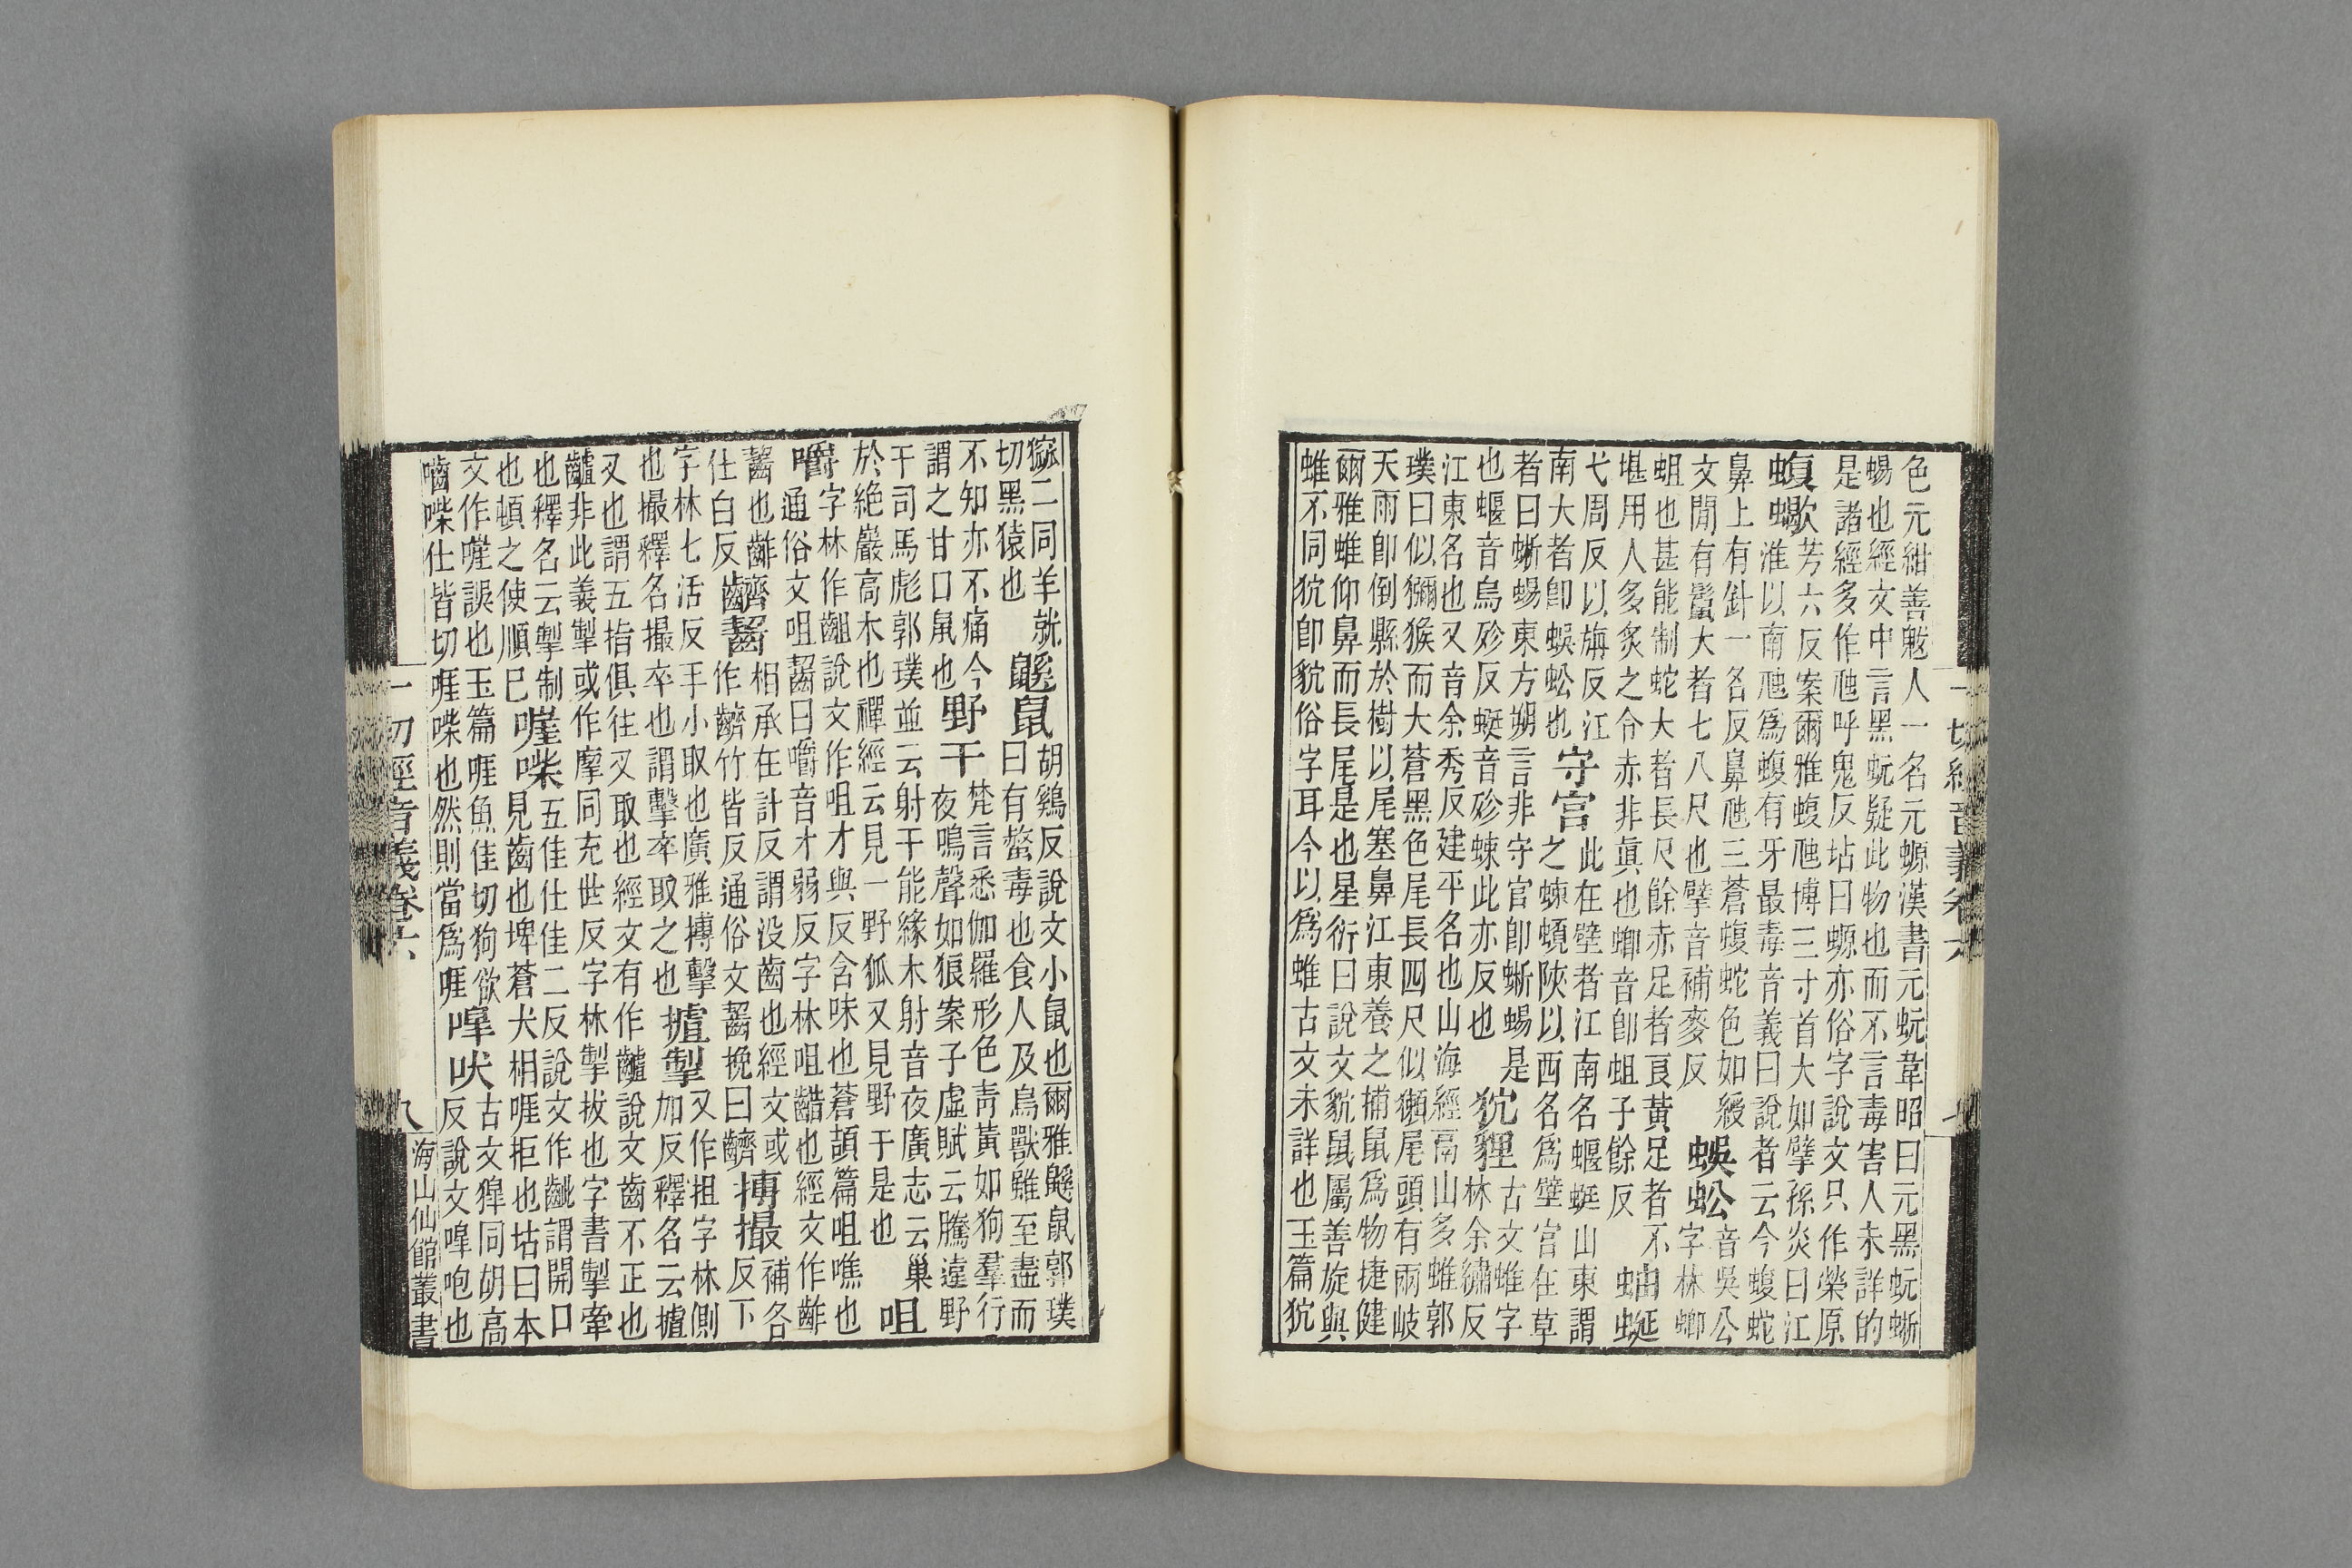 一切經音義卷六
七
色元紺善魃人一名元螈漢書元蚖韋昭曰元黑蚖蜥
蜴也經文中言黑蚖疑此物也而不言毒害人未詳的
是諸經多作虺呼鬼反坫曰螈亦俗字說文只作榮原
蝮蠍
芳六反案爾雅蝮虺博三寸首大如擘孫炎曰江
淮以南虺爲蝮有牙最毒音義曰說者云今蝮蛇
鼻上有針一名反鼻虺三蒼蝮蛇色如綬
文閒有鬣大者七八尺也擘音補麥反
蜈蚣
音吳公
字林蝍
蛆也甚能制蛇大者長尺餘赤足者良黃足者不
堪用人多炙之令赤非眞也蝍音卽蛆子餘反
蚰蜒
弋周反以旃反江
南大者卽蜈蚣也
守宮
此在壁者江南名蝘蜓山東謂
之蝀蜴陝以西名爲壁宮在草
者曰蜥蜴東方朔言非守宮卽蜥蜴是
也蝘音烏殄反蜓音殄蝀此亦反也
狖貍
古文蜼字
林余繡反
江東名也又音余秀反建平名也山海經鬲山多蜼郭
璞曰似獼猴而大蒼黑色尾長四尺似獺尾頭有兩岐
天雨卽倒縣於樹以尾塞鼻江東養之捕鼠爲物捷健
爾雅蜼仰鼻而長尾是也星衍曰說文貁鼠屬善旋與
蜼不同狖卽貁俗字耳今以爲蜼古文未詳也玉篇狖
二同羊就
切黑猿也
鼷鼠
胡鷄反說文小鼠也爾雅鼷鼠郭璞
曰有螫毒也食人及鳥獸雖至盡而
不知亦不痛今
謂之甘口鼠也
野干
梵言悉伽羅形色靑黃如狗羣行
夜鳴聲如狼案子虛賦云騰遠野
干司馬彪郭璞並云射干能緣木射音夜廣志云巢
於絶巖高木也禪經云見一野狐又見野干是也
咀
嚼
字林作齟說文作咀才與反含味也蒼頡篇咀噍也
通俗文咀齧曰嚼音才弱反字林咀齰也經文作齚
齧也齚
仕白反
齧
相承在計反謂没齒也經文或
作齌竹皆反通俗文齧挽曰齌
搏撮
補各
反下
字林七活反手小取也廣雅搏擊
也撮釋名撮卒也謂擊卒取之也
摣掣
又作抯字林側
加反釋名云摣
叉也謂五指俱往叉取也經文有作齇說文齒不正也
齇非此義掣或作摩同充世反字林掣拔也字書掣牽
也釋名云掣制
也頓之使順已
嘊喍
五佳仕佳二反說文作齜謂開口
見齒也埤蒼犬相啀拒也坫曰本
文作嘊誤也玉篇啀魚佳切狗欲
嚙喍仕皆切啀喍也然則當爲啀
嘷吠
古文獔同胡高
反說文嘷咆也
一切經音義卷六
八
海山仙館叢書